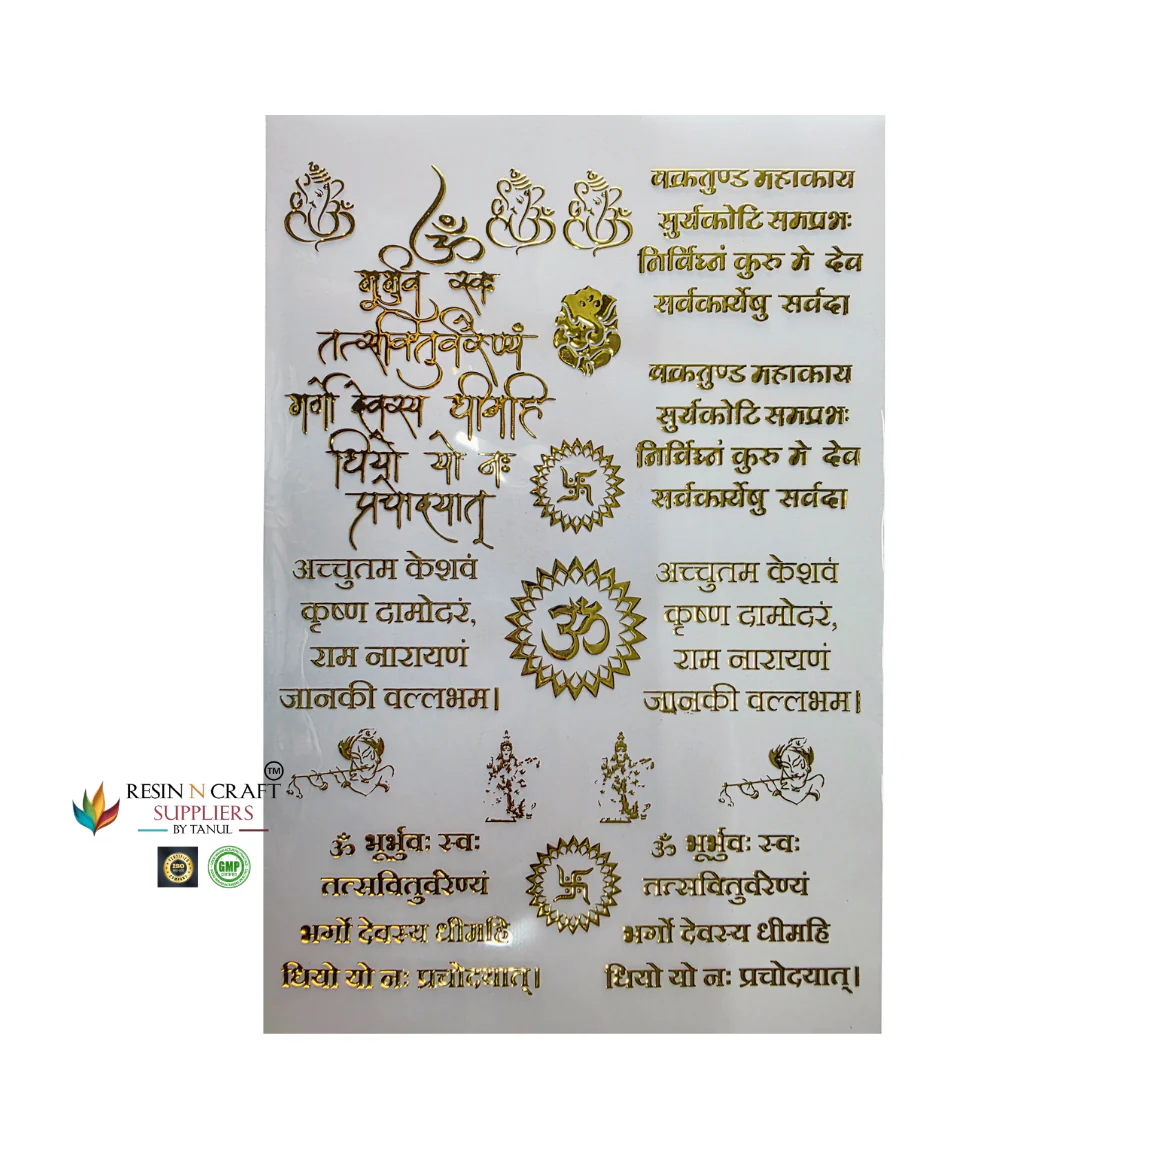 ॐ
भूर्भुव स्वः
तत्सवितुर्वरेण्यं
भर्गो देवस्य धीमहि
धियो यो नः
प्रचोदयात्
वक्रतुण्ड महाकाय
सुर्यकोटि समप्रभः
निर्विघ्नं कुरु मे देव
सर्वकार्येषु सर्वदा
वक्रतुण्ड महाकाय
सुर्यकोटि समप्रभः
निर्विघ्नं कुरु मे देव
सर्वकार्येषु सर्वदा
अच्चुतम केशवं
कृष्ण दामोदरं,
राम नारायणं
जानकी वल्लभम।
ॐ
अच्चुतम केशवं
कृष्ण दामोदरं,
राम नारायणं
जानकी वल्लभम।
RESIN N CRAFT TM
SUPPLIERS
BY TANUL
ISO
GMP
ॐ भूर्भुवः स्वः
तत्सवितुर्वरेण्यं
भर्गो देवस्य धीमहि
धियो यो नः प्रचोदयात्।
ॐ भूर्भुवः स्वः
तत्सवितुर्वरेण्यं
भर्गो देवस्य धीमहि
धियो यो नः प्रचोदयात्।